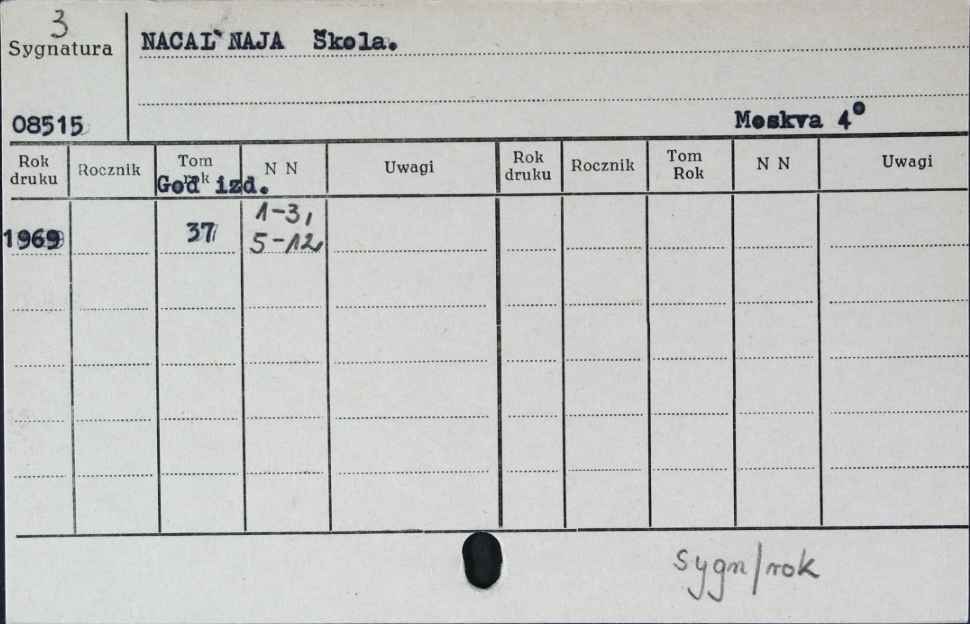 3
Sygnatura
NACAL`NAJA Škola.
08515
Moskva 4°
Rok druku Rocznik Tom rok N N Uwagi Rok druku Rocznik Tom Rok N N Uwagi
God izd.
1969 37 1-3,
5-12,
Sygn/rok